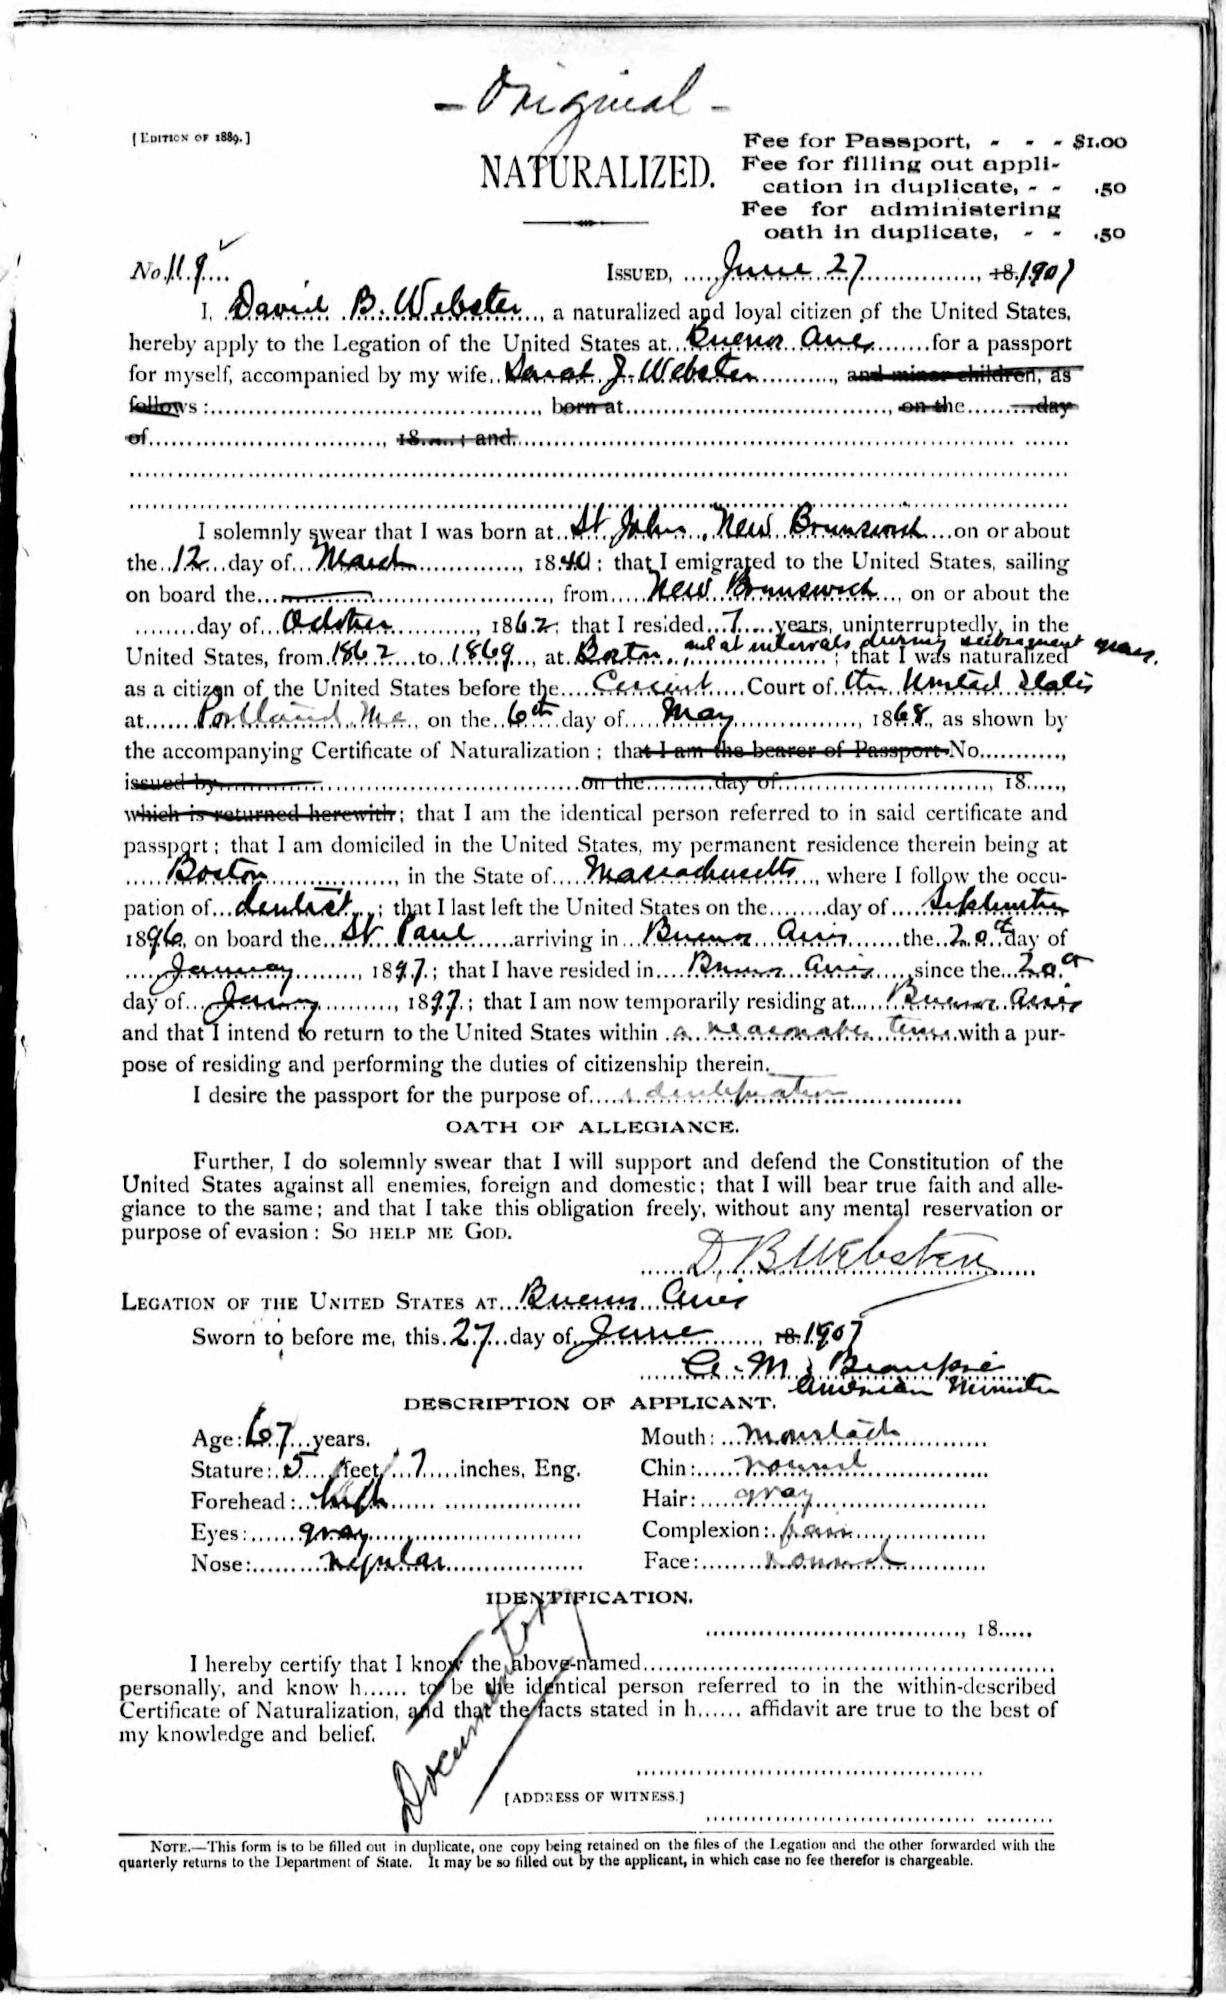 - Original -
[EDITION OF 1889.]
NATURALIZED.
Fee for Passport, - - - $1.00
Fee for filling out appli-
cation in duplicate, - - .50
Fee for administering
oath in duplicate, - - .50
No. 119 ISSUED, June 27, 18 1907
I, David B. Webster, a naturalized and loyal citizen of the United States,
hereby apply to the Legation of the United States at Buenos Aires for a passport
for myself, accompanied by my wife Sarah J. Webster, and minor children, as
follows: , born at , on the day
of , 18 ; and
I solemnly swear that I was born at St John, New Brunswick on or about
the 12 day of March, 1840; that I emigrated to the United States, sailing
on board the , from New Brunswick, on or about the
day of October, 1862; that I resided 7 years, uninterruptedly, in the
United States, from 1862 to 1869, at Boston, and at intervals during subsequent years; that I was naturalized
as a citizen of the United States before the Circuit Court of the United States
at Portland Me, on the 6th day of May, 1868, as shown by
the accompanying Certificate of Naturalization; that I am the bearer of Passport No. ,
issued by on the day of , 18 ,
which is returned herewith; that I am the identical person referred to in said certificate and
passport; that I am domiciled in the United States, my permanent residence therein being at
Boston, in the State of Massachusetts, where I follow the occu-
pation of dentist; that I last left the United States on the day of September
1896, on board the St Paul arriving in Buenos Aires the 20th day of
January, 1897; that I have resided in Buenos Aires, since the 20th
day of January, 1897; that I am now temporarily residing at Buenos Aires
and that I intend to return to the United States within a reasonable time with a pur-
pose of residing and performing the duties of citizenship therein.
I desire the passport for the purpose of identification
OATH OF ALLEGIANCE.
Further, I do solemnly swear that I will support and defend the Constitution of the
United States against all enemies, foreign and domestic; that I will bear true faith and alle-
giance to the same; and that I take this obligation freely, without any mental reservation or
purpose of evasion: SO HELP ME GOD.
D. B Webster
LEGATION OF THE UNITED STATES AT Buenos Aires
Sworn to before me, this 27 day of June, 18 1907
A. M. Beaupré
American Minister
DESCRIPTION OF APPLICANT.
Age: 67 years. Mouth: moustach
Stature: 5 feet 7 inches, Eng. Chin: round
Forehead: high Hair: gray
Eyes: gray Complexion: fair
Nose: regular Face: round
IDENTIFICATION.
, 18
Documentary
I hereby certify that I know the above-named
personally, and know h to be the identical person referred to in the within-described
Certificate of Naturalization, and that the facts stated in h affidavit are true to the best of
my knowledge and belief.
[ADDRESS OF WITNESS.]
NOTE.—This form is to be filled out in duplicate, one copy being retained on the files of the Legation and the other forwarded with the
quarterly returns to the Department of State. It may be so filled out by the applicant, in which case no fee therefor is chargeable.